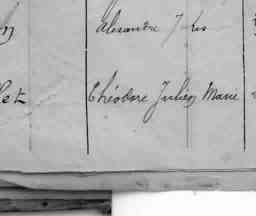 Alexandre Jules
let Théodore Julien Marie